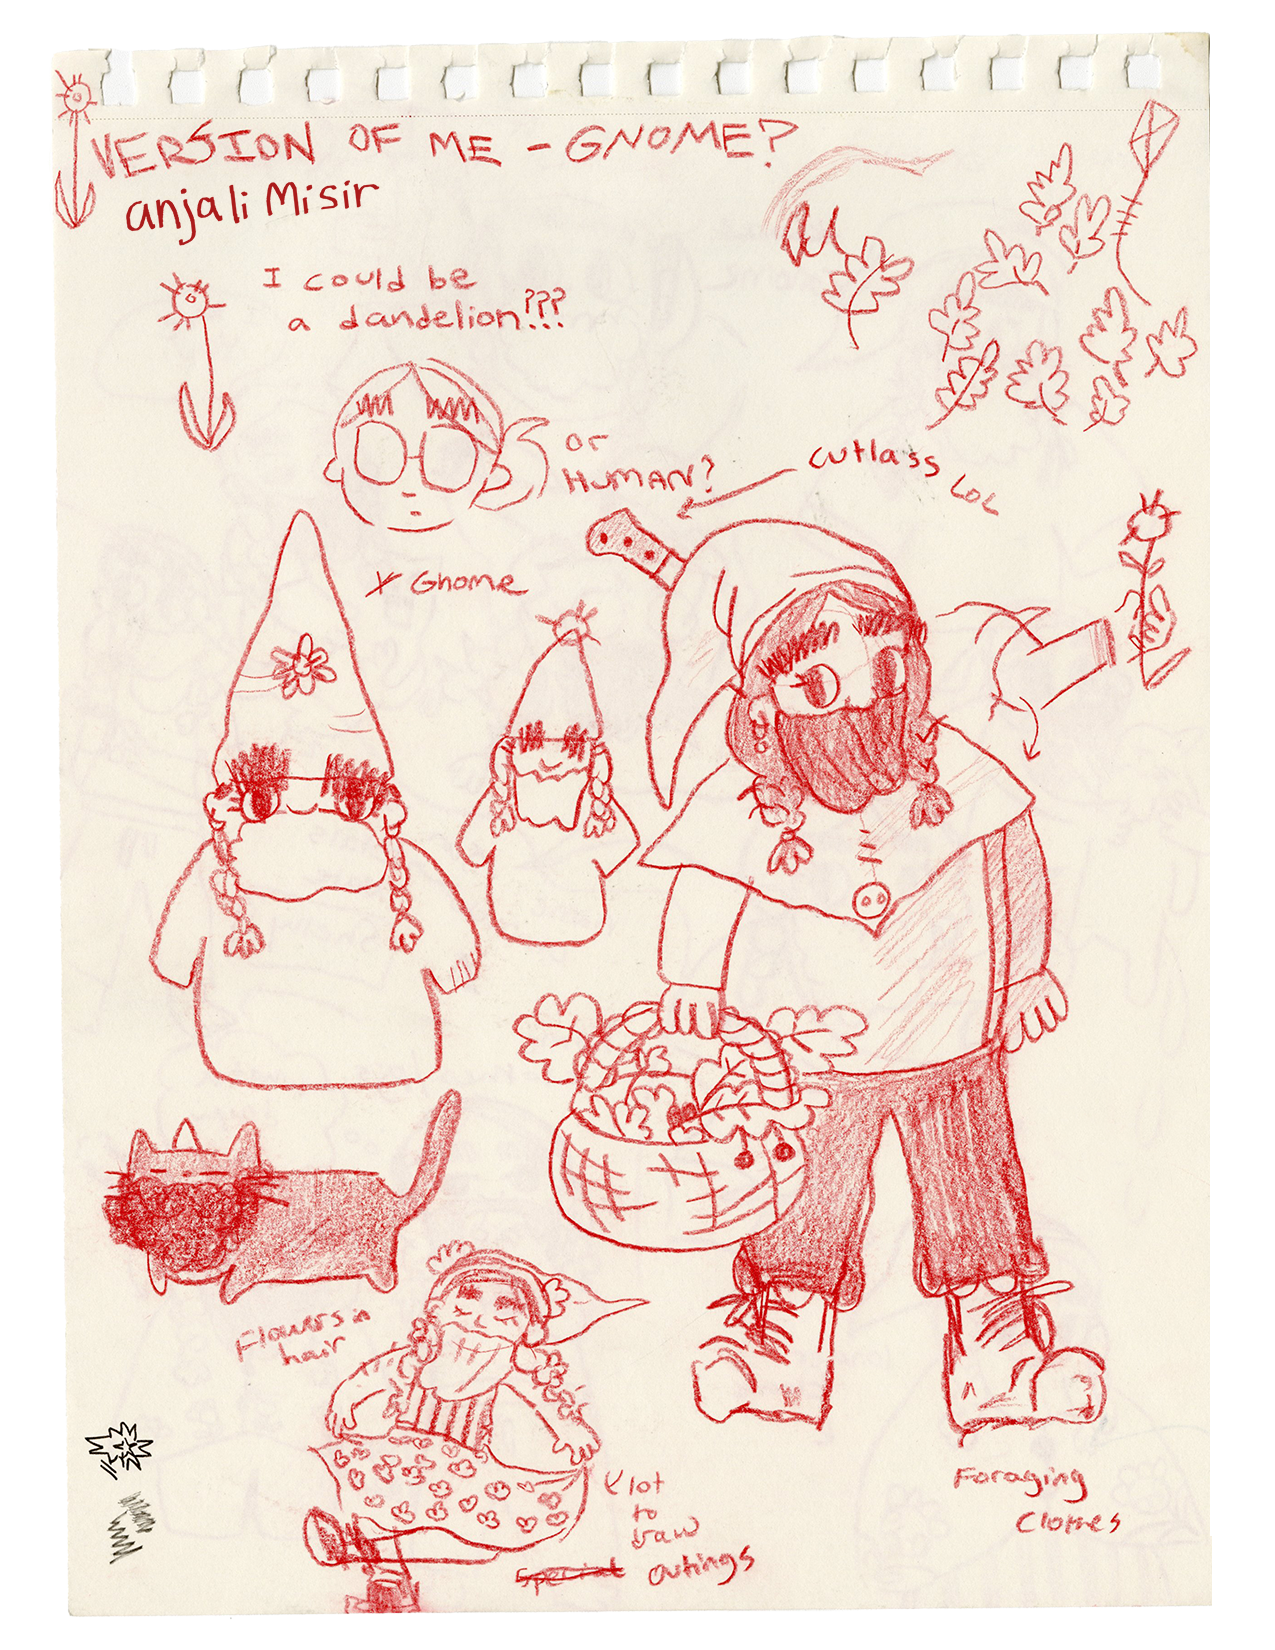 VERSION OF ME - GNOME?
anjali Misir
I could be
a dandelion???
or
HUMAN?
cutlass
LOL
Gnome
Flowers in
hair
lot
to
draw
Special outings
Foraging
Clothes